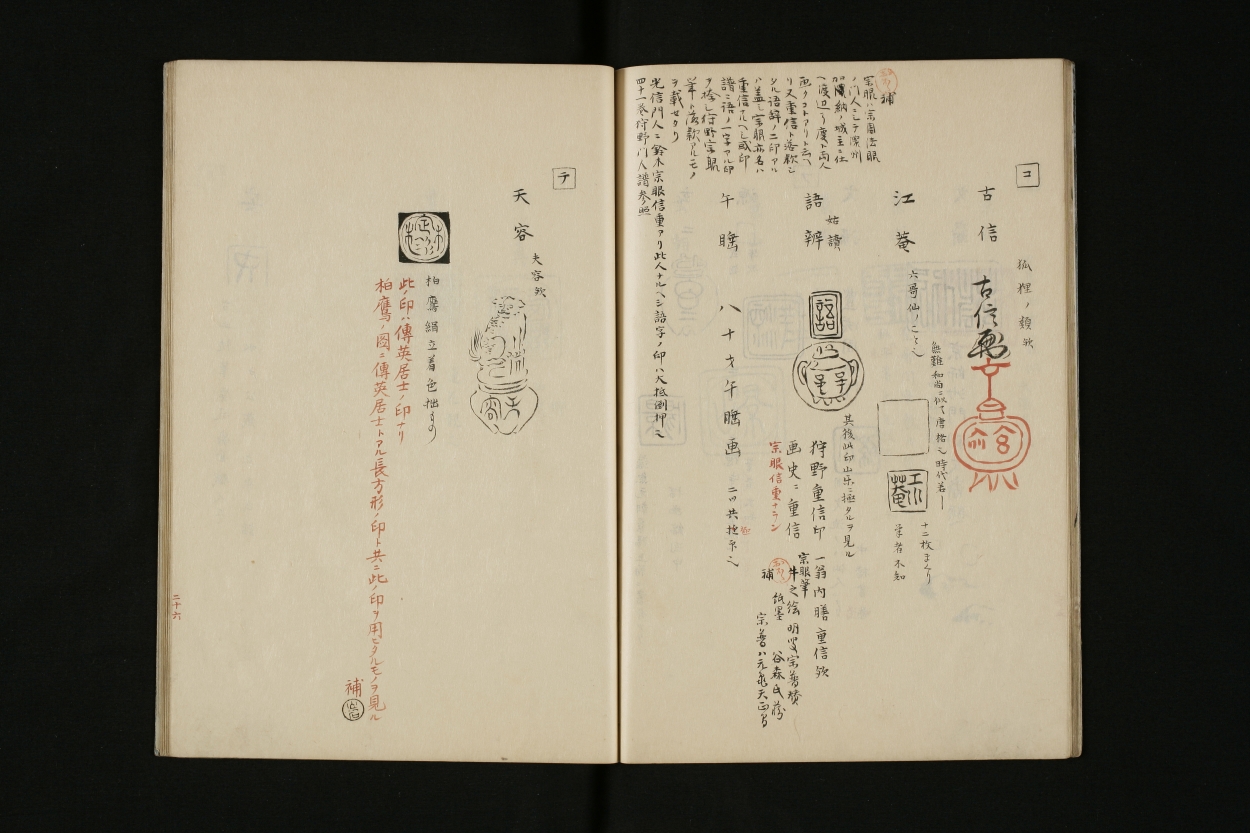 コ
古信
狐狸ノ類欤
古信画
江菴
六哥仙ノこと之
無難和尚ニ似て唐格之時代若シ
江菴
十二枚まくり
筆者不知
語辨
姑讀
語
其後此印山乐ニ極タルヲ見ル
狩野重信印
画史ニ重信
宗眼信重ナラン
一翁内膳重信欤
宗眼筆
牛之絵
紙墨
谷森氏蔵
補
午瞎
八十才午瞎画
補
宗眼ハ宗周法眼
ノ門人ニシテ
加納ノ城主ニ仕
画クコトアリト云フ
リ又重信ト落款シ
タル語辞ノ二印アル
ハ蓋シ宗眼亦名ハ
重信ナルヘシ或印
譜ニ語ノ一字アル印
ヲ捺し狩野宗眼
筆ト落款アルモノ
ヲ載セタリ
光信門人ニ鈴木宗眼信重アリ此人ナルヘシ語字ノ印ハ大抵倒押之
四十一巻狩野門人譜参照
テ
天容
夫容欤
天容
柏鷹絹立着色拙もの
此ノ印ハ傳英居士ノ印ナリ
柏鷹ノ図ニ傳英居士トアル長方形ノ印ト共ニ此ノ印ヲ用ヒタルモノヲ見ル
補
二十六